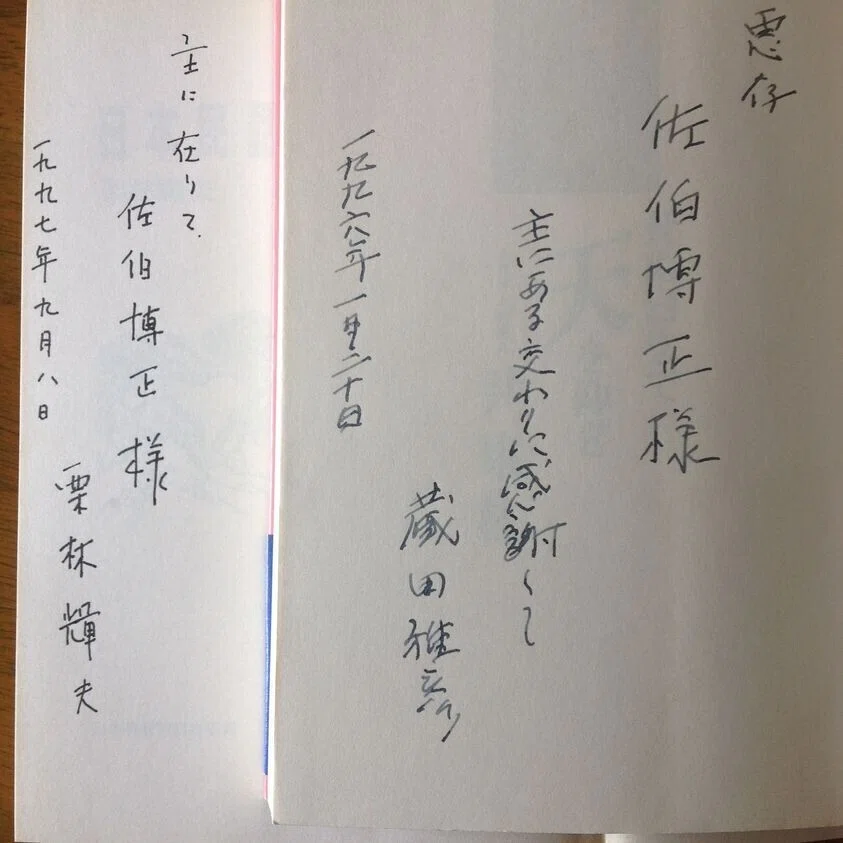 恵存
佐伯博正様
主にある交わりに感謝して
一九九六年一月二十日
蔵田雅彦
主に在りて.
佐伯博正様
一九九七年九月八日
栗林輝夫